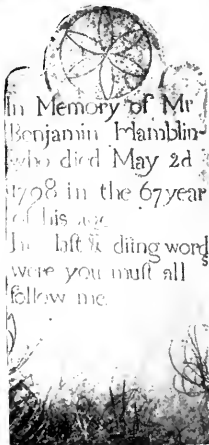 In Memory of Mr
Benjamin Hamblin
who died May 2d
1798 in the 67 year
of his age
his last & diing words
were you muſt all
follow me.